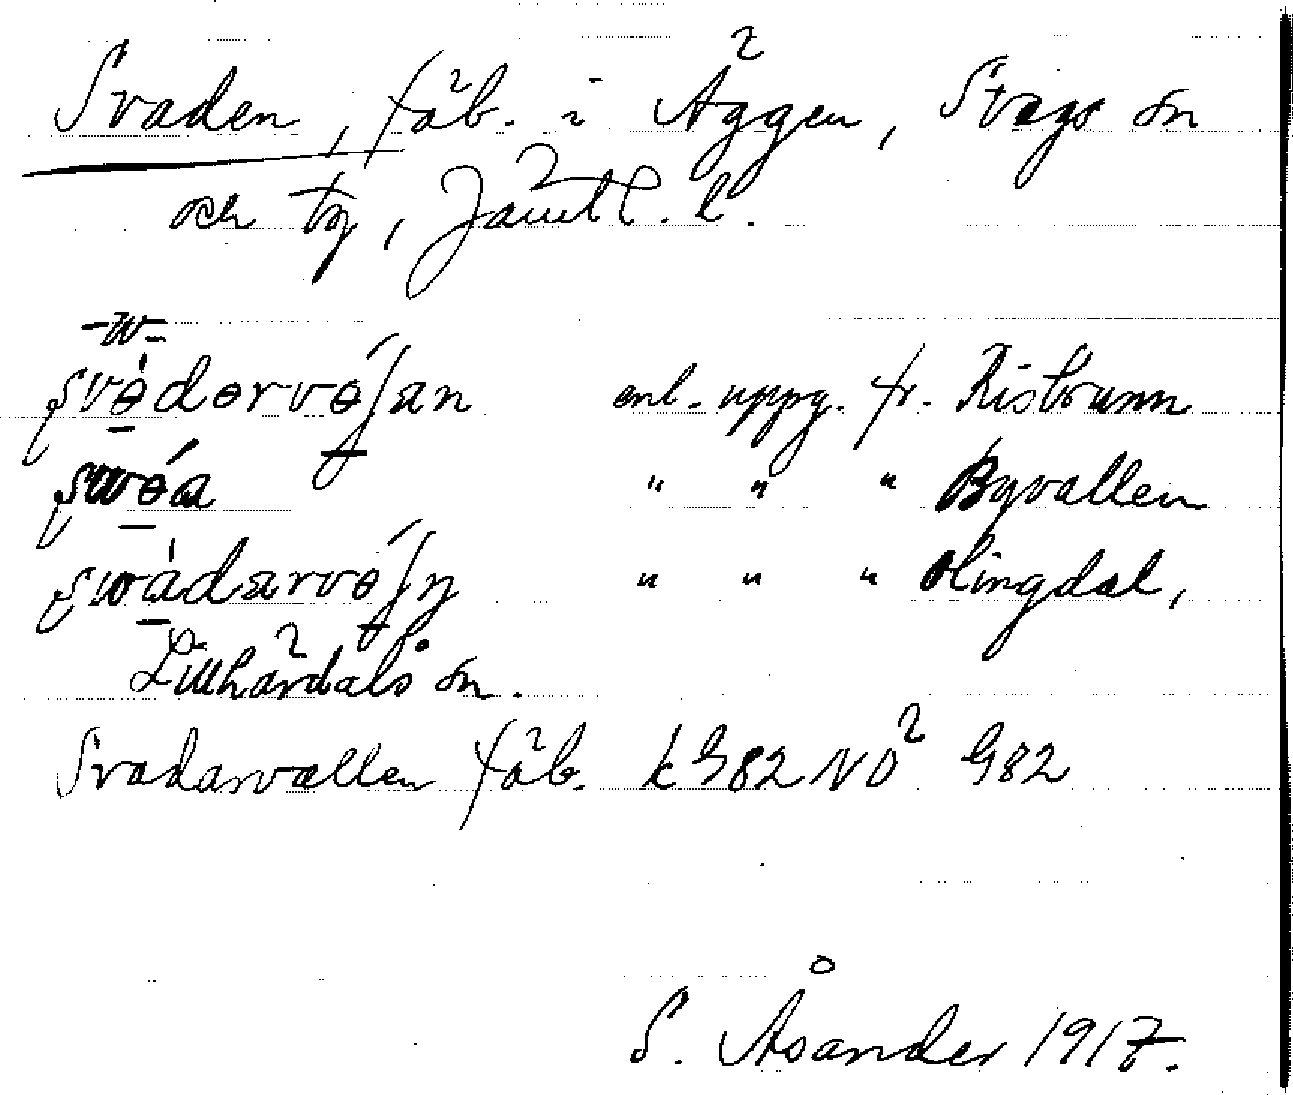 Svaden, fäb. i Äggen, Svegs sn
och tg, Jämtl. l.
-w-
svèdervǿʃan enl. uppg. fr. Ristbrunn
swǿa " " " Byvallen
swàdarvǿʃn " " " Olingdal,
Lillhärdals sn.
Svadarvallen fäb. k G82 NO² G82
S. Åsander 1917.